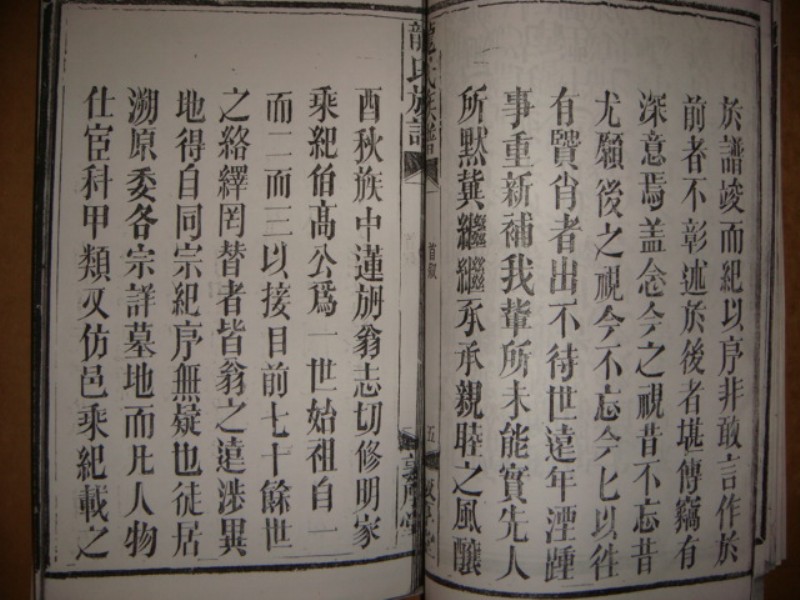 於譜竣而紀以序非敢言作於
前者不彰述於後者堪傳竊有
深意焉盖念今之視昔不忘昔
尤願後之視今不忘今匕以徃
有賢肖者出不待世遠年湮踵
事重新補我輩所未能實先人
所默冀繼繼承承親睦之風釀
龍氏族譜
首叙
五
敦厚堂
酉秋族中蓮舫翁志切修明家
乘紀伯高公爲一世始祖自一
而二而三以接目前七十餘世
之絡繹罔替者皆翁之遠涉異
地得自同宗紀序無疑也徒居
溯原委各宗詳墓地而凡人物
仕宦科甲類又仿邑乘紀載之